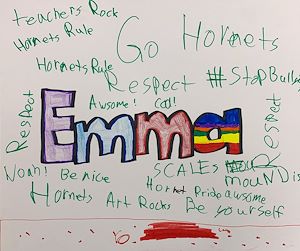 teachers Rock
Hornets Rule
Go Hornets
Hornets Rule
Respect #StopBully
Awsome! Cool!
Respect
Emma
Respect
Noah! Be nice
SCALES
mouND is
Hornet Pride awsome
Hornets Art Rocks Be yourself